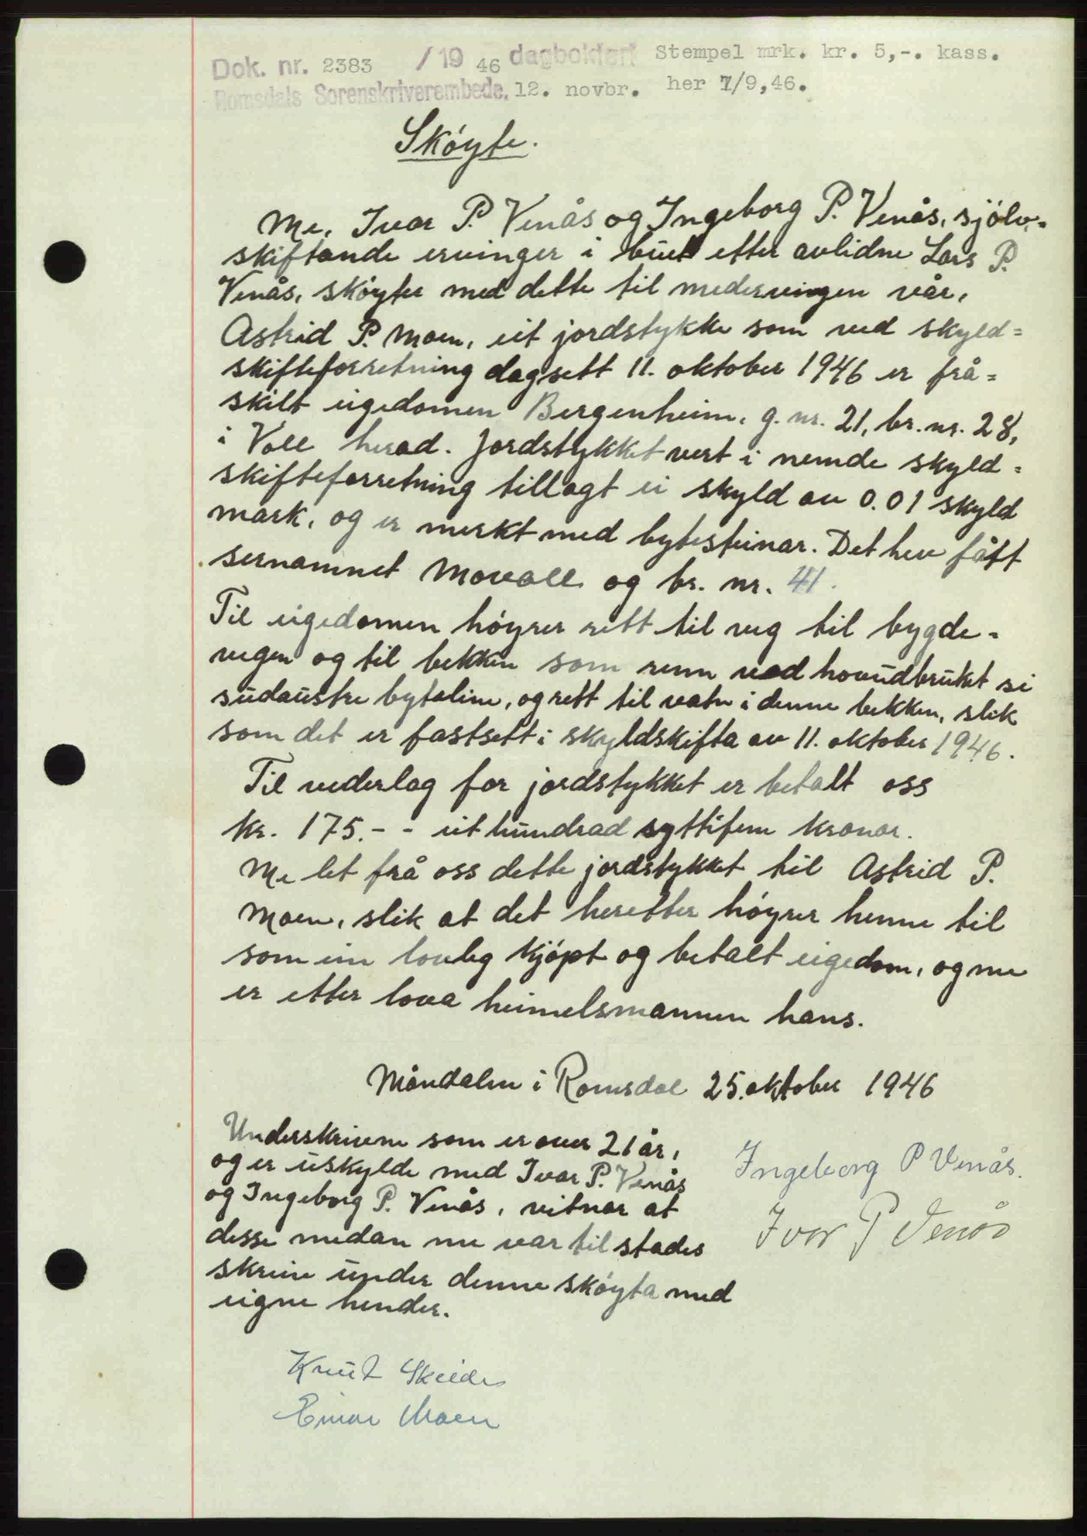 Dok. nr. 2383 / 19 46 dagbokført Stempel mrk. kr. 5,-. kass.
Romsdals Sorenskriverembede, 12. novbr. her 7/9,46.
Skøyte.
Me, Ivar P. Venås og Ingeborg P. Venås, sjølv-
skiftande ervinger i buet etter avlidne Lars P.
Venås, skøyter med dette til medervingen vår,
Astrid P. Moen, eit jordstykke som ved skyld=
skifteforretning dagsett 11. oktober 1946 er frå=
skilt eigedomen Bergenheim, g. nr. 21, br. nr. 28,
i Voll herad. Jordstykket vert i nemde skyld=
skifteforretning tillagt ei skyld av 0.01 skyld
mark, og er merkt med bytesteinar. Det hev fått
sernamnet Movoll og br. nr. 41.
Til eigedomen høyrer rett til veg til bygde-
vegen og til bekken som renn ved hovudbruket si
sudaustre byteline, og rett til vatn i denne bekken, slik
som det er fastsett i skyldskifta av 11. oktober 1946.
Til vederlag for jordstykket er betalt oss
kr. 175.- - eit hundrad syttifem kronor.
Me let frå oss dette jordstykket til Astrid P.
Moen, slik at det heretter høyrer henne til
som ein lovleg kjøpt og betalt eigedom, og me
er etter lova heimelsmannen hans.
Måndalen i Romsdal 25. oktober 1946
Underskrivne som er over 21 år,
og er uskylde med Ivar P. Venås
og Ingeborg P. Venås, vitnar at
desse medan me var til stades
skreiv under denne skøyta med
eigne hender.
Ingeborg P Venås.
Ivar P Venås
Knut Skeide
Einar Moen